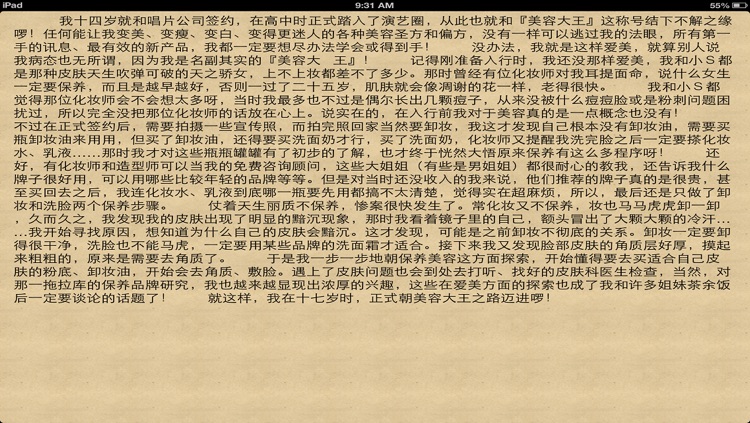 iPad
9:31 AM
55%
我十四岁就和唱片公司签约，在高中时正式踏入了演艺圈，从此也就和『美容大王』这称号结下不解之缘
啰！任何能让我变美、变瘦、变白、变得更迷人的各种美容圣方和偏方，没有一样可以逃过我的法眼，所有第一
手的讯息、最有效的新产品，我都一定要想尽办法学会或得到手！ 没办法，我就是这样爱美，就算别人说
我病态也无所谓，因为我是名副其实的『美容大 王』！ 记得刚准备入行时，我还没那样爱美，我和小Ｓ都
是那种皮肤天生吹弹可破的天之骄女，上不上妆都差不了多少。那时曾经有位化妆师对我耳提面命，说什么女生
一定要保养，而且是越早越好，否则一过了二十五岁，肌肤就会像凋谢的花一样，老得很快。 我和小Ｓ都
觉得那位化妆师会不会想太多呀，当时我最多也不过是偶尔长出几颗痘子，从来没被什么痘痘脸或是粉刺问题困
扰过，所以完全没把那位化妆师的话放在心上。说实在的，在入行前我对于美容真的是一点概念也没有！
不过在正式签约后，需要拍摄一些宣传照，而拍完照回家当然要卸妆，我这才发现自己根本没有卸妆油，需要买
瓶卸妆油来用用，但买了卸妆油，还得要买洗面奶才行，买了洗面奶，化妆师又提醒我洗完脸之后一定要搽化妆
水、乳液……那时我才对这些瓶瓶罐罐有了初步的了解，也才终于恍然大悟原来保养有这么多程序呀！ 还
好，有化妆师和造型师可以当我的免费咨询顾问，这些大姐姐（有些是男姐姐）都很耐心的教我，还告诉我什么
牌子很好用，可以用哪些比较年轻的品牌等等。但是对当时还没收入的我来说，他们推荐的牌子真的是很贵，甚
至买回去之后，我连化妆水、乳液到底哪一瓶要先用都搞不太清楚，觉得实在超麻烦，所以，最后还是只做了卸
妆和洗脸两个保养步骤。 仗着天生丽质不保养，惨案很快发生了。常化妆又不保养，妆也马马虎虎卸一卸
，久而久之，我发现我的皮肤出现了明显的黯沉现象，那时我看着镜子里的自己，额头冒出了大颗大颗的冷汗…
…我开始寻找原因，想知道为什么自己的皮肤会黯沉。这才发现，可能是之前卸妆不彻底的关系。卸妆一定要卸
得很干净，洗脸也不能马虎，一定要用某些品牌的洗面霜才适合。接下来我又发现脸部皮肤的角质层好厚，摸起
来粗粗的，原来是需要去角质了。 于是我一步一步地朝保养美容这方面探索，开始懂得要去买适合自己皮
肤的粉底、卸妆油，开始会去角质、敷脸。遇上了皮肤问题也会到处去打听、找好的皮肤科医生检查，当然，对
那一拖拉库的保养品牌研究，我也越来越显现出浓厚的兴趣，这些在爱美方面的探索也成了我和许多姐妹茶余饭
后一定要谈论的话题了！ 就这样，我在十七岁时，正式朝美容大王之路迈进啰！